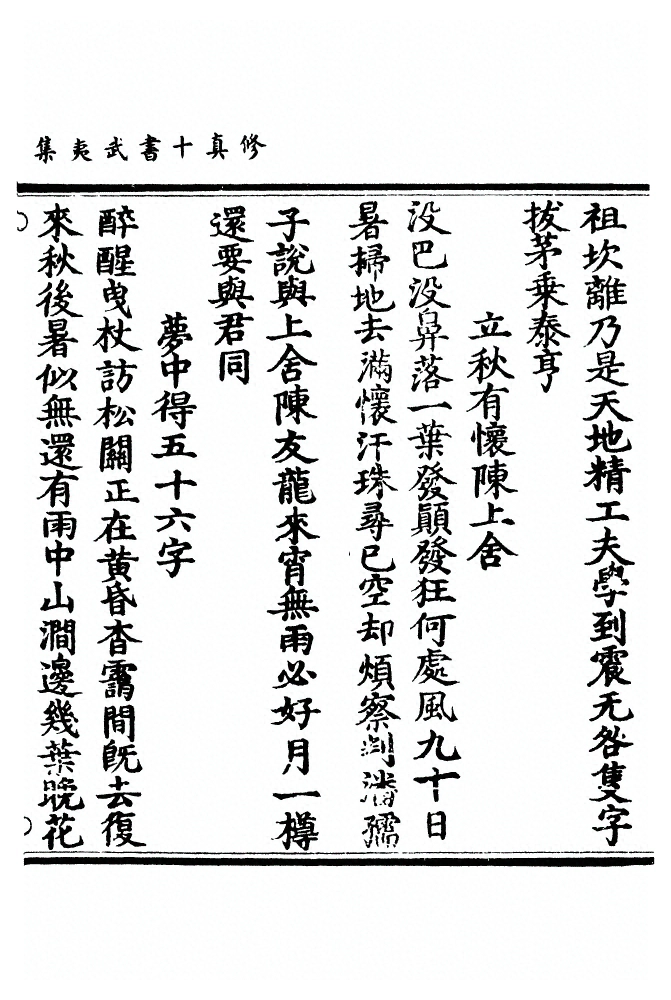 修真十書武夷集
祖坎離乃是天地精工夫學到震无咎隻字
拔茅乗泰亨
立秋有懷陳上舍
没巴没鼻落一葉發顛發狂何處風九十日
暑掃地去滿懷汗珠尋已空却煩察判潘孺
子說與上舍陳友龍來宵無雨必好月一樽
還要與君同
夢中得五十六字
醉醒曳杖訪松關正在黄昏杳靄間旣去復
來秋後暑似無還有雨中山澗邊幾葉晚花